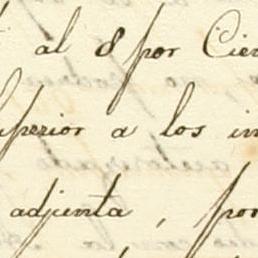 al 8 por Cien
Superior a los in
adjunta, por